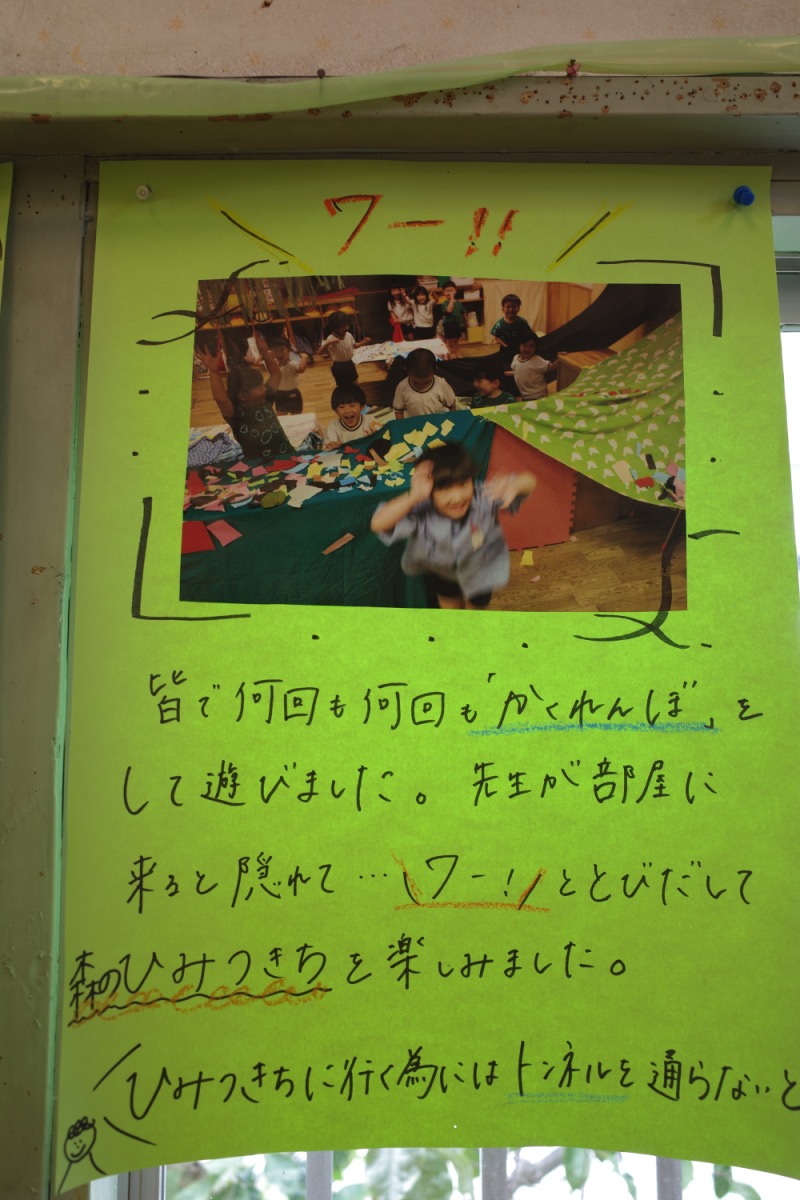 ワー!!
皆で何回も何回も「かくれんぼ」を
して遊びました。先生が部屋に
来ると隠れて…\ワー!/ととびだして
森のひみつきちを楽しみました。
ひみつきちに行く為にはトンネルを通らないと